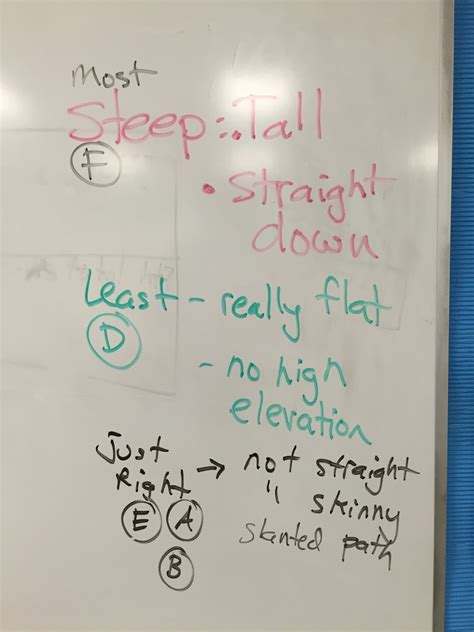 most
Steep:. Tall
F
• Straight
down
Least - really flat
D
- no high
elevation
Just
Right → not straight
" skinny
E A
slanted path
B